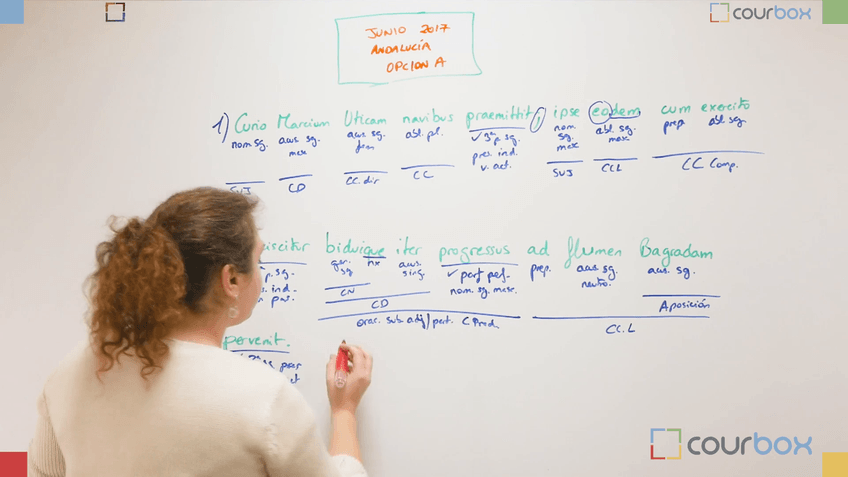 courbox
JUNIO 2017
ANDALUCÍA
OPCION A
1) Curio Marcium Uticam navibus praemittit; ipse eodem cum exercito
nom sg. acus. sg. masc acus. sg. fem abl. pl. v 3ªp sg. pres. ind. v. act. nom. sg. masc abl. sg. masc prep. abl. sg.
SUJ CD CC.dir CC SUJ CCL CC Comp.
biduique iter progressus ad flumen Bagradam
p. sg. gen. sg. nx acus. sing. v part. perf. nom. sg. masc. prep. acus. sg. neutro. acus. sg.
CN Aposición
CD
orac. sub. adj/part. C Pred. CC.L
pervenit.
courbox